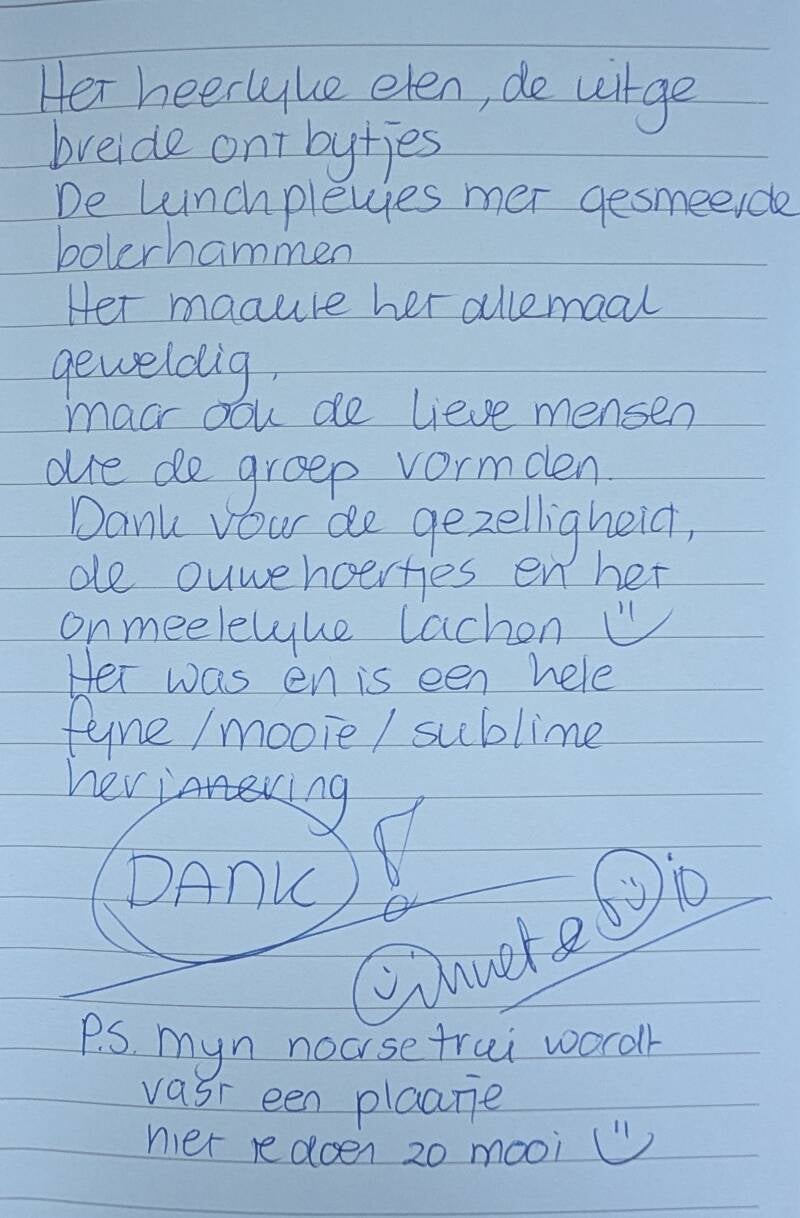 Het heerlyke eten, de uitge
breide ontbytjes
De lunchplekjes met gesmeerde
boterhammen
Het maakte het allemaal
geweldig,
maar ook de lieve mensen
die de groep vormden.
Dank voor de gezelligheid,
de ouwehoertjes en het
onmeetelyke lachen
Het was en is een hele
fyne / mooie / sublime
herinnering
DANK !
&
P.S. Myn noorse trui wordt
vast een plaatje
niet te doen zo mooi